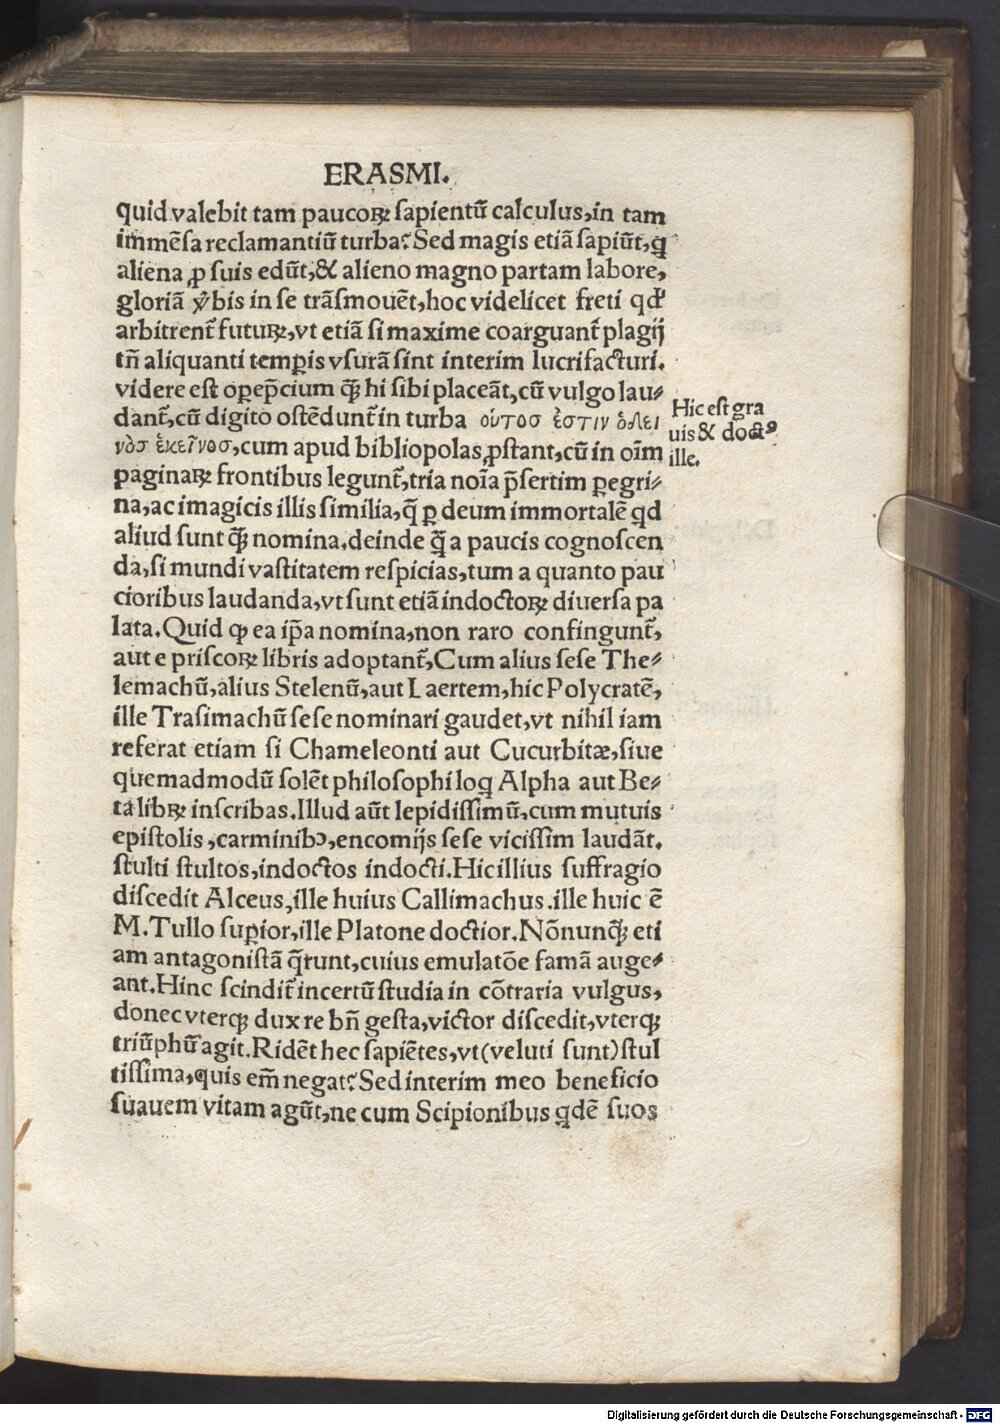 ERASMI.
quid valebit tam paucoꝝ ſapientũ calculus, in tam
immẽſa reclamantiũ turba? Sed magis etiã ſapiũt, q̃
aliena ꝓ ſuis edũt, & alieno magno partam labore,
gloriã v̉bis in ſe trãſmouẽt, hoc videlicet freti qd'
arbitrent᷑ futuꝝ, vt etiã ſi maxime coarguant᷑ plagij
tñ aliquanti tempꝑis vſurã ſint interim lucrifacturi.
videre eſt oꝑep̃cium q̃ꝫ hi ſibi placeãt, cũ vulgo lau⸗
dant᷑, cũ digito oſtẽdunt᷑ in turba οὑτοσ ἐστιν ὁλει
νὸσ ἐκεῖνοσ, cum apud bibliopolas ꝓſtant, cũ in oĩm
paginaꝝ frontibus legunt᷑, tria noĩa p̃ſertim ꝑegri⸗
na, ac imagicis illis ſimilia, q̃ ꝑ deum immortalẽ qd
aliud ſunt q̃ꝫ nomina. deinde q̃ a paucis cognoſcen
da, ſi mundi vaſtitatem reſpicias, tum a quanto pau
cioribus laudanda, vt ſunt etiã indoctoꝝ diuerſa pa
lata. Quid ꝙ ea ip̃a nomina, non raro confingunt᷑,
aut e priſcoꝝ libris adoptant᷑, Cum alius ſeſe The⸗
lemachũ, alius Stelenũ, aut Laertem, hic Polycratẽ,
ille Traſimachũ ſeſe nominari gaudet, vt nihil iam
referat etiam ſi Chameleonti aut Cucurbitæ, ſiue
quemadmodũ ſolẽt philoſophi loq Alpha aut Be⸗
ta libꝝ inſcribas. Illud aũt lepidiſſimũ, cum mutuis
epiſtolis, carminibꝰ, encomijs ſeſe viciſſim laudãt.
ſtulti ſtultos, indoctos indocti. Hic illius ſuffragio
diſcedit Alceus, ille huius Callimachus. ille huic ẽ
M. Tullo ſuꝑior, ille Platone doctior. Nõnunq̃ꝫ eti
am antagoniſtã q̃runt, cuius emulatõe famã auge⸗
ant. Hinc ſcindit᷑ incertũ ſtudia in cõtraria vulgus,
donec vterqꝫ dux re bñ geſta, victor diſcedit, vterqꝫ
triũphũ agit. Ridẽt hec ſapiẽtes, vt (veluti ſunt) ſtul
tiſſima, quis em̃ negat? Sed interim meo beneficio
ſuauem vitam agũt, ne cum Scipionibus qdẽ ſuos
Hic eſt gra
uis & doctꝰ
ille.
Digitalisierung gefördert durch die Deutsche Forschungsgemeinschaft - DFG